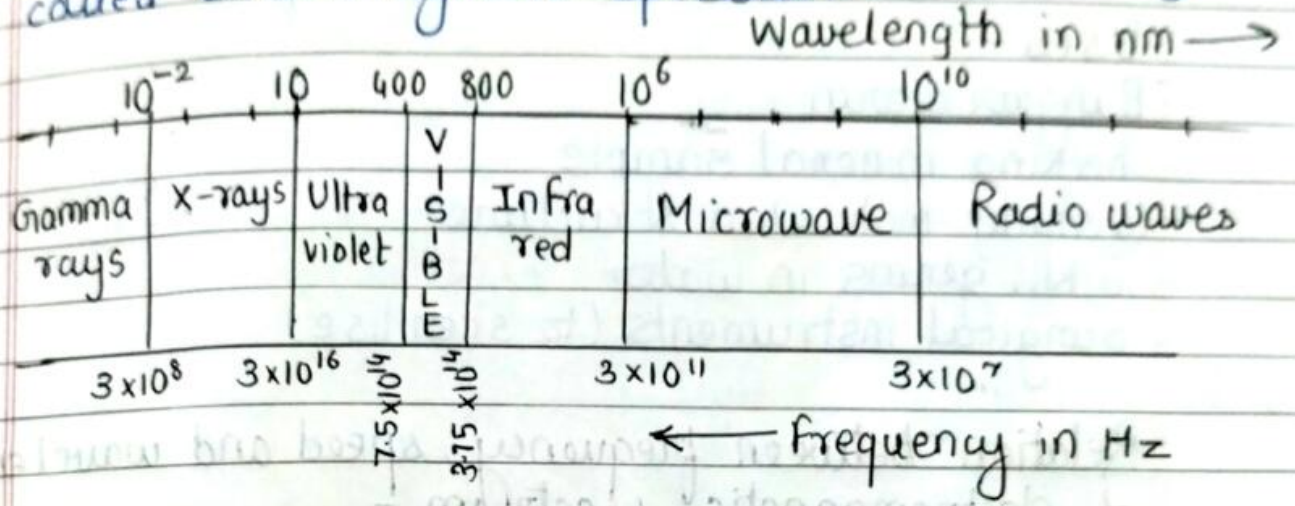 called
Wavelength in nm →
10⁻² 10 400 800 10⁶ 10¹⁰
Gamma rays
X-rays
Ultra violet
VISIBLE
Infra red
Microwave
Radio waves
3×10⁸ 3×10¹⁶ 7.5×10¹⁴ 3.75×10¹⁴ 3×10¹¹ 3×10⁷
← frequency in Hz